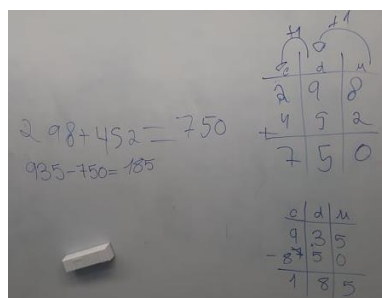 298+452=750
935-750=185
+1 +1
c d u
2 9 8
+ 4 5 2
7 5 0
c d u
9 3 5
- 5 0
1 8 5